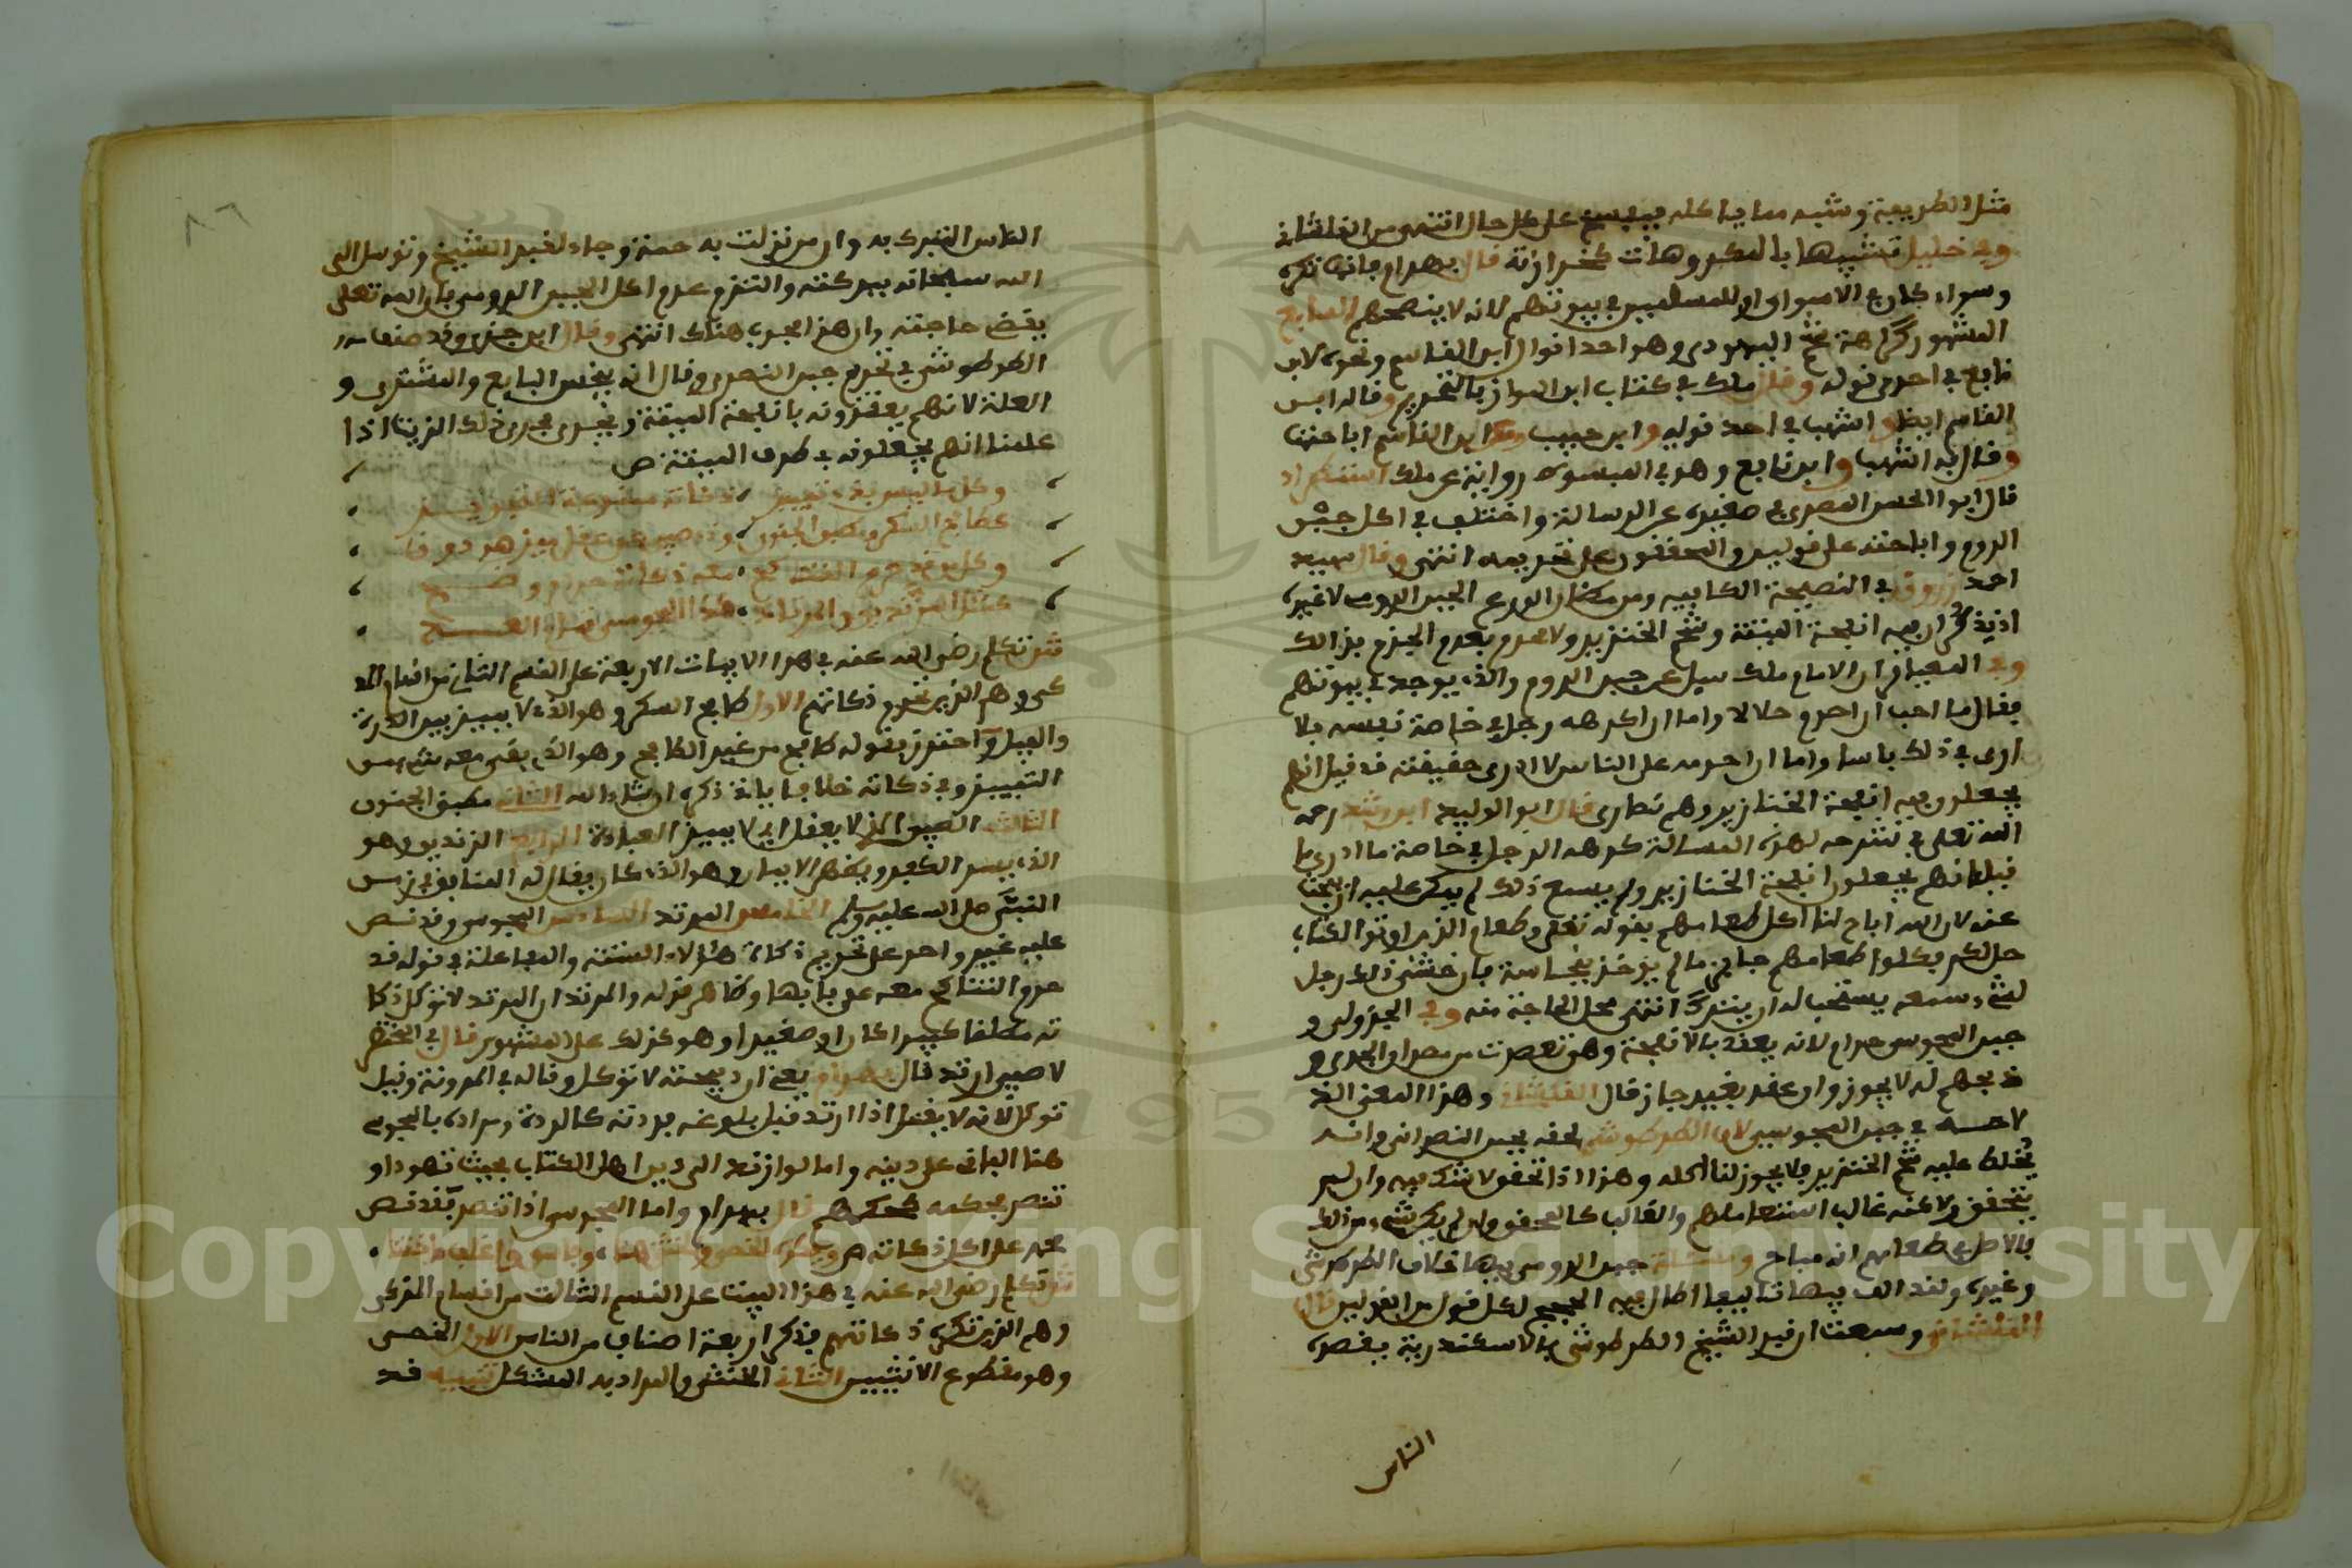 مثل الطريفة وشبه مما ياكله على كل حال انتهى من القلشاني
وفي خليل تشبيهها بالمكروهات كخراز نه قال بهرام فانها تكره
وسواء كان في الاسواق او للمسلمين في بيوتهم لانه لا ينصحهم السابع
المشهور كراهة شحم اليهودي وهو احد اقوال ابن القاسم ونحوه لابن
نافع في احدى قوله وقال ملك في كتاب ابن المواز بالتحريم وقاله ابن
القاسم ايضا واشهب في احد قوليه وابن حبيب وعن ابن القاسم اباحتها
وقال به اشهب وابن نافع وهو في المبسوط رواية عن ملك استطراد
قال ابو الحسن المصري في صغيره عن الرسالة واختلف في اكل جبن
الروم واباحته على قولين والمحققون على تحريمه انتهى وقال سيد
احمد زروق في النصيحة الكافية ومن مكان الورع الجبن الرومى لا غيره
اذ يذكر ان فيه انفحة الميتة وشحم الخنزير ولا محرم بعدم الجزم بذالك
وفي المعيار ان الامام ملك سيل عن جبن الروم والذ يوجد في بيوتهم
فقال ما احب ان احرم حلالا واما ان اكرهه رجل في خاصة نفسه فلا
ارى في ذلك باسا واما ان احرمه على الناس لا ادرى حقيقته قد قيل انهم
يجعلون فيه انفحة الخنازير وهم نصارى قال ابو الوليد ابن رشد رحمه
الله تعلى في شرحه لهذه المسالة كره الرجل في خاصة ما ادرى ما
قيل انهم يجعلون انفحة الخنازير ولم يسمع ذلك لم يكن عليه ان يبحث
عنه لان الله اباح لنا اكل طعامهم بقوله تعلى وطعام الذين اوتوا الكتاب
حل لكم فكلوا طعامهم جايز ما لم يوخذ بنجاسة فان خشي ذلك رجل
لشيء سمعه يستحب له ان يترك انتهى محل الحاجة منه وفي الجزولي و
جبن المجوس حرام لانه يعقد بالانفحة وهو
ذبحهم له لا يجوز وان عقد بغير جاز قال القلشاني وهذا المعنى الذ
لاحسه في جبن المجوسيين لان الطرطوشي لحقه بجبن النصراني وانه
يخلط عليه شحم الخنزير فلا يجوز لنا اكله وهذا اذا تحقق لا شك فيه وان لم
يتحقق ولاكنه غالب استعمالهم والغالب كالمحقق وان لم يكن شيء من ذلك
فالاصل في طعامهم انه مباح ومسئلة جبن الرومى فيها خلاف الطرطوشي
وغيره ولقد الف فيها تاليفا اطال فيه الحجج لكل قول من القولين قال
القلشاني وسمعت ان قبر الشيخ الطرطوشي بالاسكندرية يقصده
الناس
٨٦
الناس التبرك به وان من نزلت به حمة وجاء لقبر الشيخ وتوسل الى
الله سبحانه ببركته والتزم عدم اكل الجبن الرومى فان الله تعلى
يقض حاجته وان هذا مجرب هناك انتهى وقال ابن جزي وقد صنف
الطرطوشي في تحريم جبن النصرى وقال انه ينجس البايع والمشترى و
العلة لانهم يعقدونه بانفحة الميتة ويجرى مجرى ذلك الزيت اذا
علمنا انهم يجعلونه في ظروف الميتة ص
وكل من ليس به تمييز ذكاته ممنوعة
طافح السكر ومطبق الجنون وذو صبى
وكل من قد حرم التناكح معه ذكاته حرم
مثل المرتد كذا المجوس
ثم تكلم رضي الله عنه في هذا الابيات الاربعة على القسم الثاني من اقسام المذ
كى وهم الذين تحرم ذكاتهم الاول طافح السكر وهو الذ لا يميز بين الذرة
والفيل واحترز بقوله طافح من غير الطافح وهو الذ يبقى معه شيء من
التمييز وفي ذكاته خلاف ياتى ذكره ان شاء الله الثاني مطبق الجنون
الثالث الصبي الذ لا يعقل اي لا يميز العبادة الرابع الزنديق وهو
الذ يسر الكفر ويظهر الايمان وهو الذ كان يقال له المنافق في زمن
النبي صلى الله عليه وسلم الخامس المرتد السادس المجوس وقد نص
عليه غير واحد على تحريم ذكاة هؤلاء الستة والمفاعلة في قوله قد
حرم التناكح معه على بابها وظاهر قوله والمرتد ان المرتد لا توكل ذكا
ته مطلقا كبيرا كان او صغيرا وهو كذلك على المشهور قال في المختصر
لا صبي ارتد قال بهرام يعني ان ذبيحته لا توكل وقاله في المدونة وقيل
توكل لانه لا يقتل اذا ارتد قبل بلوغه فردته كالردة ومراده بالمجوس
هنا الباقي على دينه واما لو ارتد الى دين اهل الكتاب بحيث تهود او
تنصر فحكمه كحكمهم قال بهرام واما المجوس اذا تنصر فقد نص
محمد على اكل ذكاته ص ويكره الخصي والخنثى هنا وفاسق واغلف
ثم تكلم رضي الله عنه في هذا البيت على القسم الثالث من اقسام المذكى
وهم الذين تكره ذكاتهم فذكر اربعة اصناف من الناس الاول الخصى
وهو مقطوع الانثيين الثاني الخنثى والمراد به المشكل تنبيه قد
Copyright © King Saud University
1957